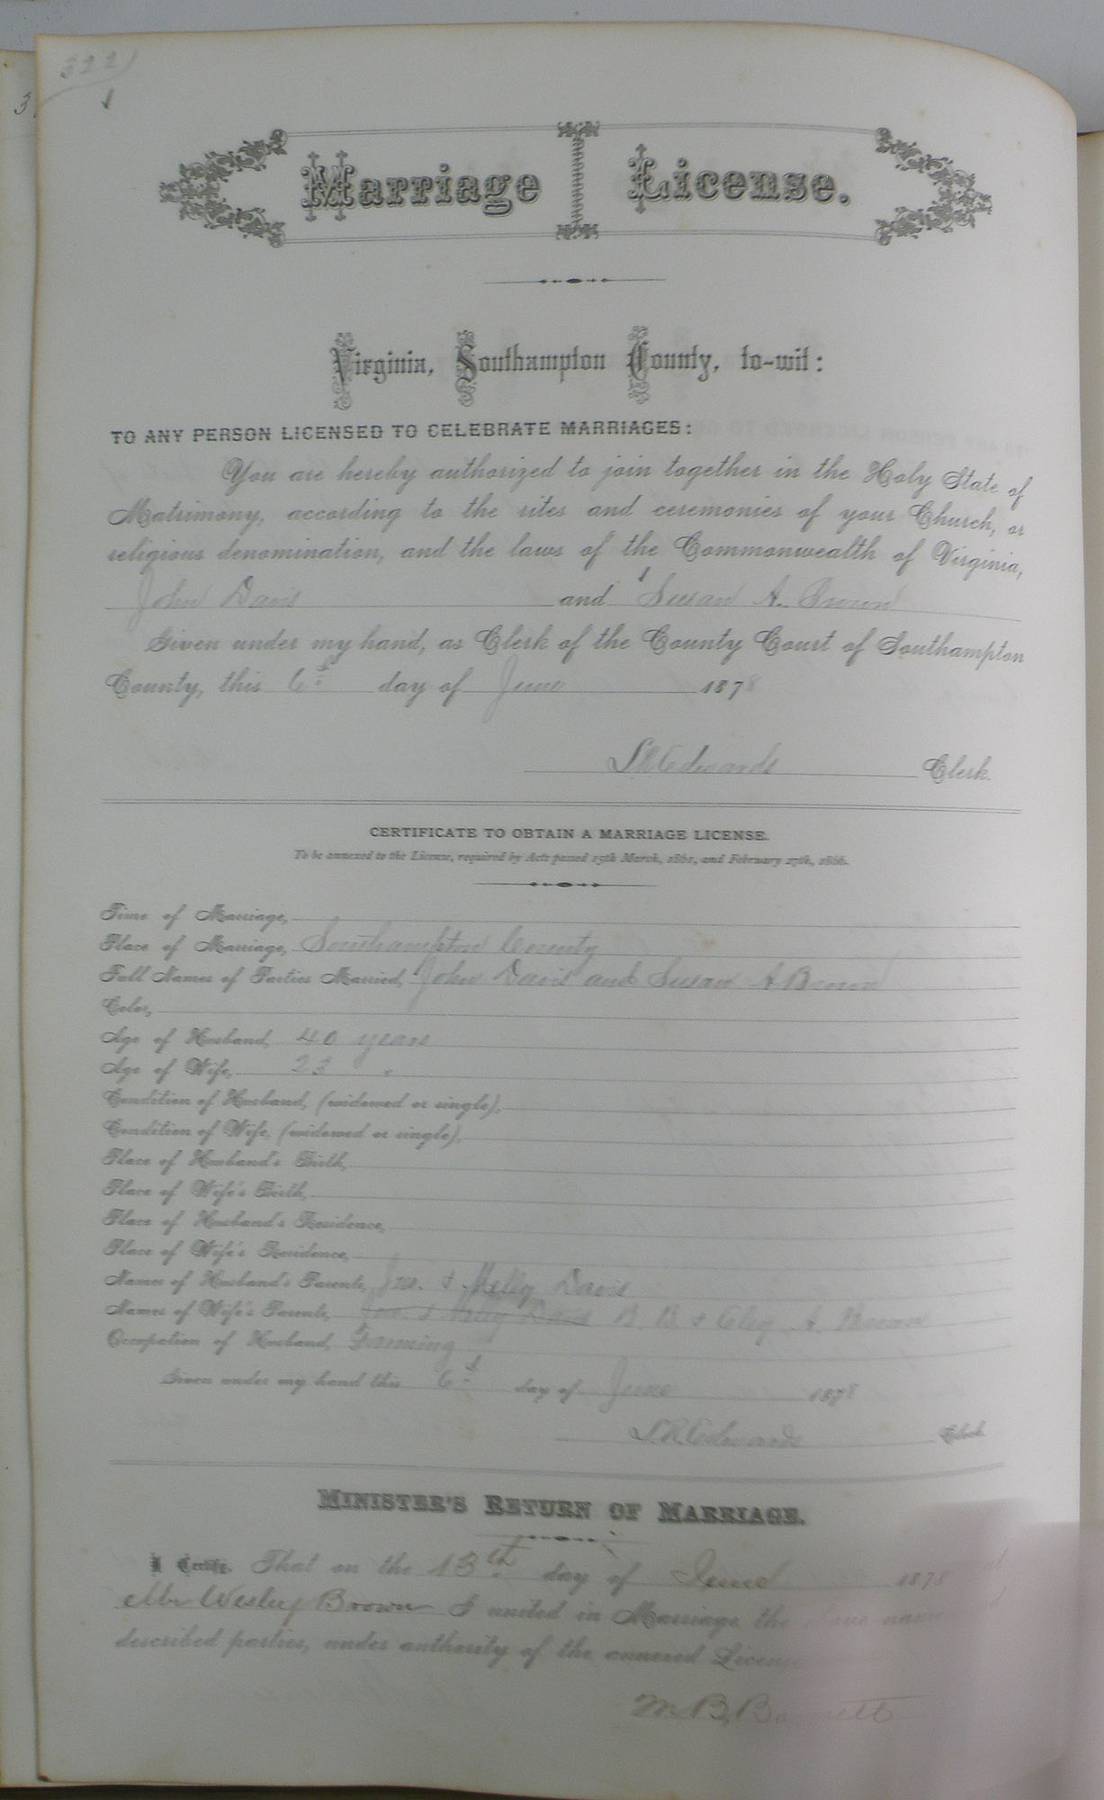 322
Marriage License.
Virginia, Southampton County, to-wit:
TO ANY PERSON LICENSED TO CELEBRATE MARRIAGES:
You are hereby authorized to join together in the Holy State of
Matrimony, according to the rites and ceremonies of your Church, or
religious denomination, and the laws of the Commonwealth of Virginia,
John Davis and Susan A. Brown
Given under my hand, as Clerk of the County Court of Southampton
County, this 6th day of June 1878
L R Edwards Clerk.
CERTIFICATE TO OBTAIN A MARRIAGE LICENSE.
To be annexed to the License, required by Acts passed 15th March, 1861, and February 27th, 1866.
Time of Marriage,
Place of Marriage, Southampton County
Full Names of Parties Married, John Davis and Susan A Brown
Color,
Age of Husband, 40 years
Age of Wife, 23 "
Condition of Husband, (widowed or single),
Condition of Wife, (widowed or single),
Place of Husband's Birth,
Place of Wife's Birth,
Place of Husband's Residence,
Place of Wife's Residence,
Names of Husband's Parents, Jno. & Melly Davis
Names of Wife's Parents, Jno. & Melly Davis B. B. & A. Brown
Occupation of Husband, Farming
Given under my hand this 6th day of June 1878
L R Edwards Clerk
MINISTER'S RETURN OF MARRIAGE.
I Certify, That on the 13th day of June 1878
Mr Wesley Brown I united in Marriage the
described parties, under authority of the annexed License
M. B. Barrett